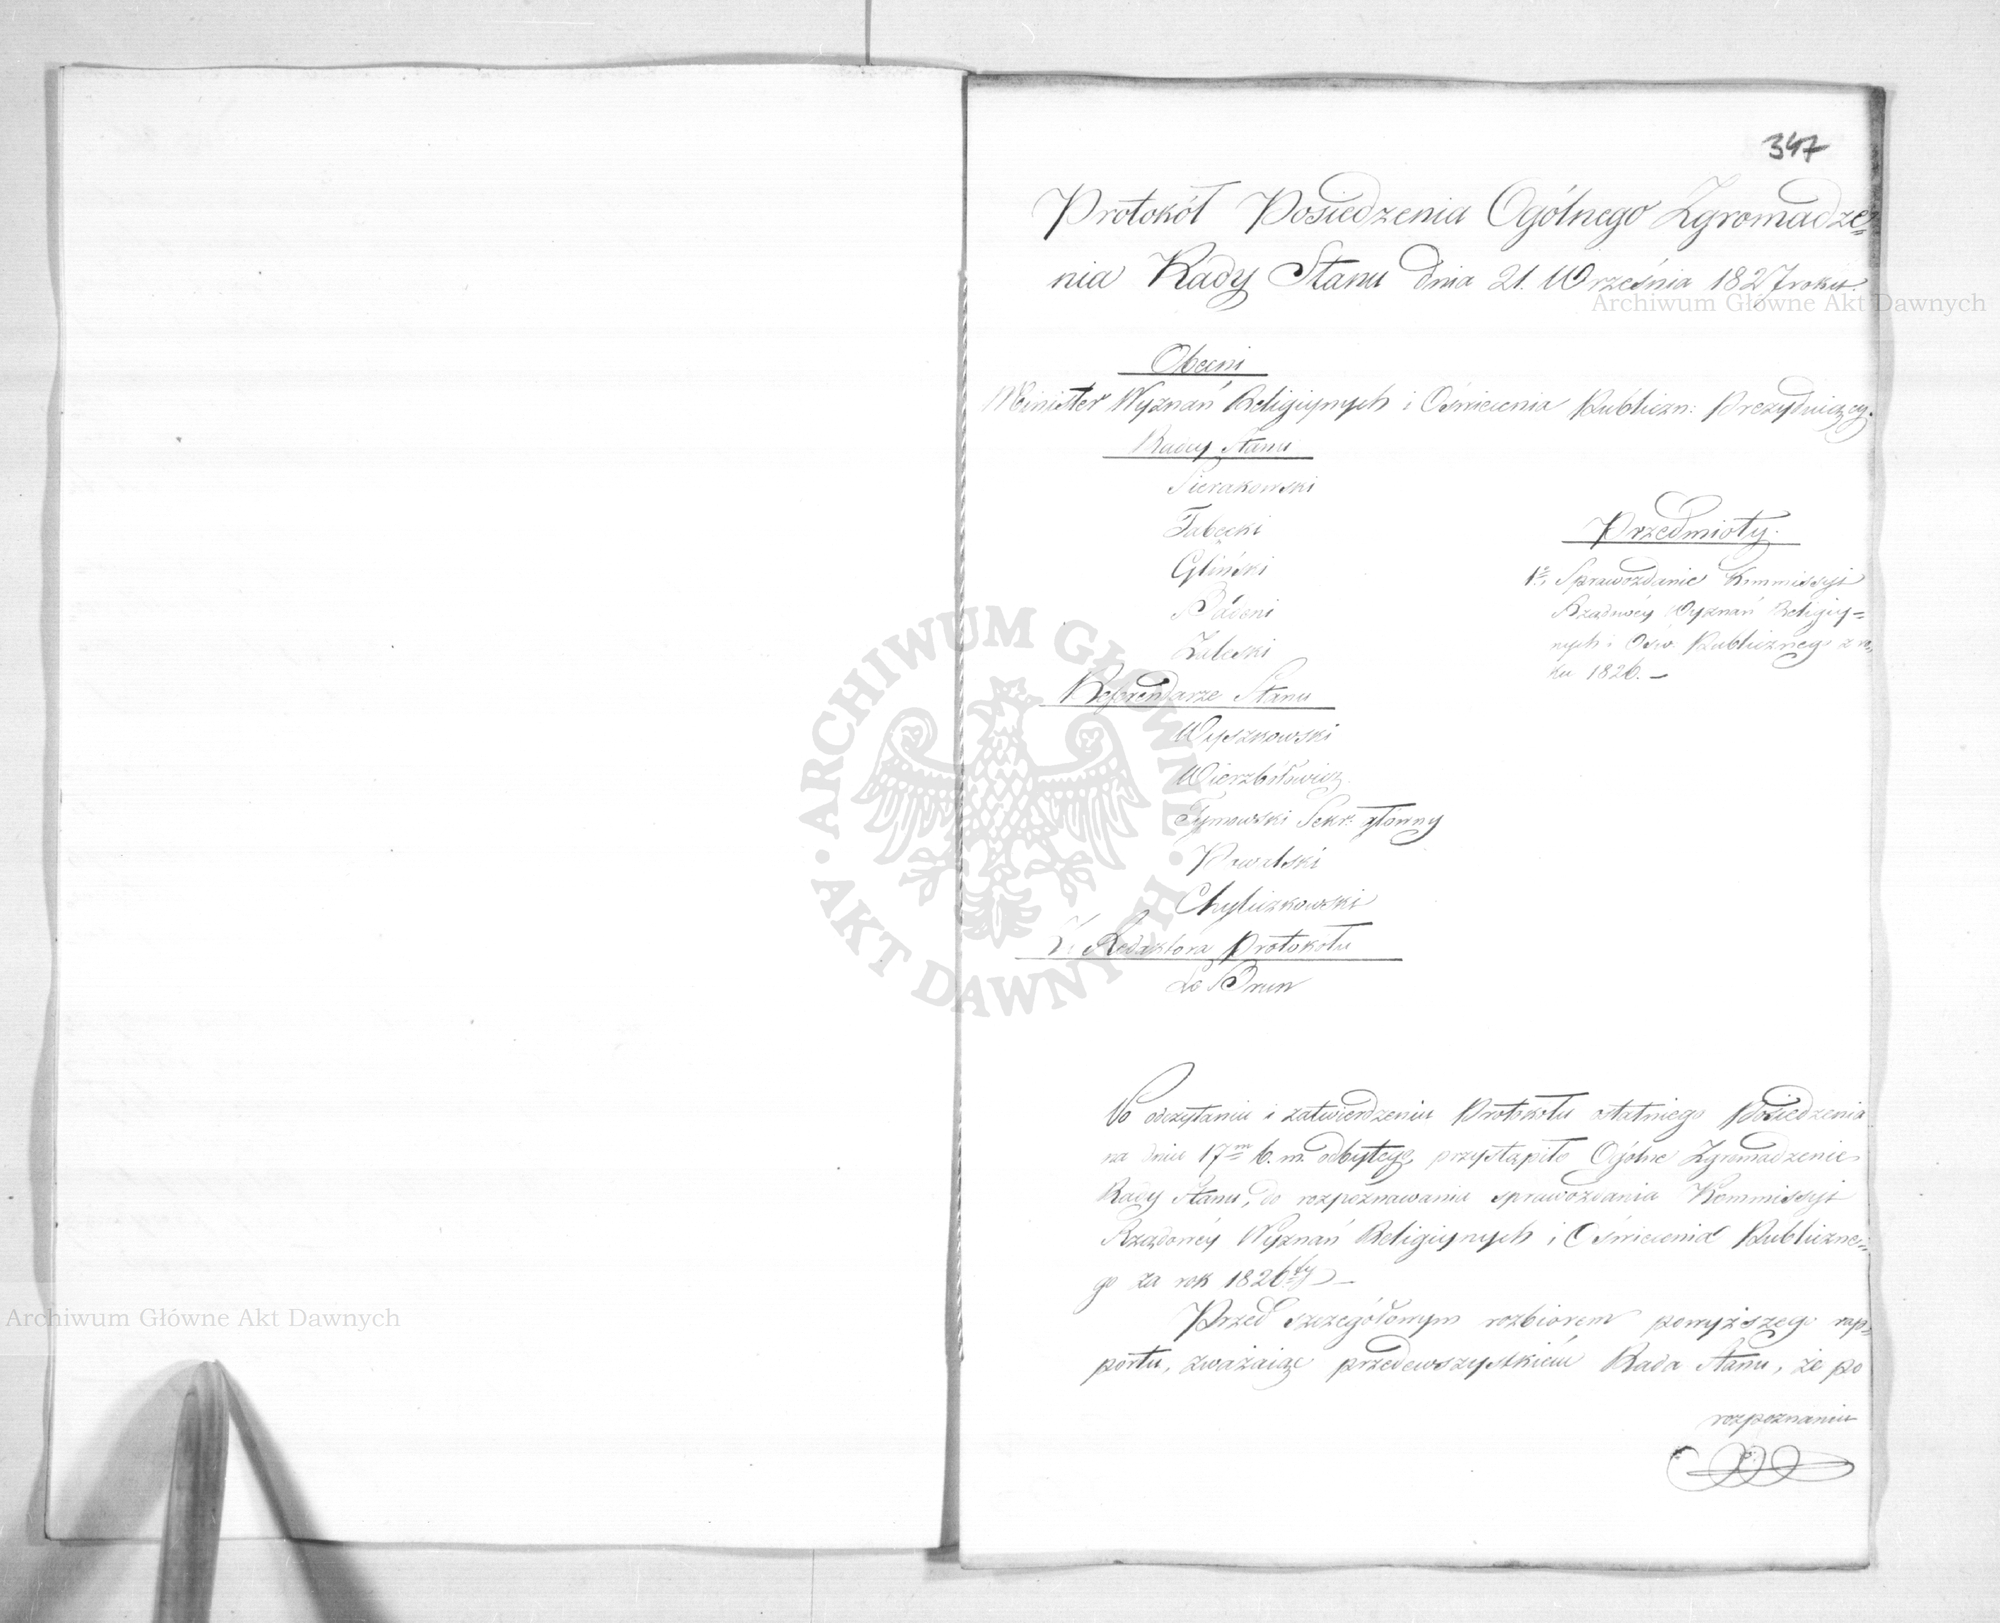 347
Protokół Posiedzenia Ogólnego Zgromadze-
nia Rady Stanu dnia 21. Września 1827 roku.
Archiwum Główne Akt Dawnych
Obecni
Minister Wyznań Religiynych i Oświecenia Publiczn: Prezyduiący.
Radcy Stanu
Sierakowski
Tabęcki
Gliński
Badeni
Zaleski
Referendarze Stanu
Wyszkowski
Wierzbółowicz
Tymowski Sekr: główny
Pawelski
Chyliczkowski
Z: Redaktora Protokołu
Le Brun
Przedmioty.
1º, Sprawozdanie Kommissyi
Rządowéy Wyznań Religiy-
nych i Ośw. Publicznego z ro-
ku 1826. –
ARCHIWUM GŁÓWNE
AKT DAWNYCH
Po odczytaniu i zatwierdzeniu Protokołu ostatniego Posiedzenia
na dniu 17m b. m. odbytego, przystąpiło Ogólne Zgromadzenie
Rady Stanu, do rozpoznawania sprawozdania Kommissyi
Rządowéy Wyznań Religiynych i Oświecenia Publiczne-
go za rok 1826ty –
Archiwum Główne Akt Dawnych
Przed szczegółowym rozbiorem powyższego rap-
portu, zważaiąc przedewszystkiém Rada Stanu, że po
rozpoznaniu